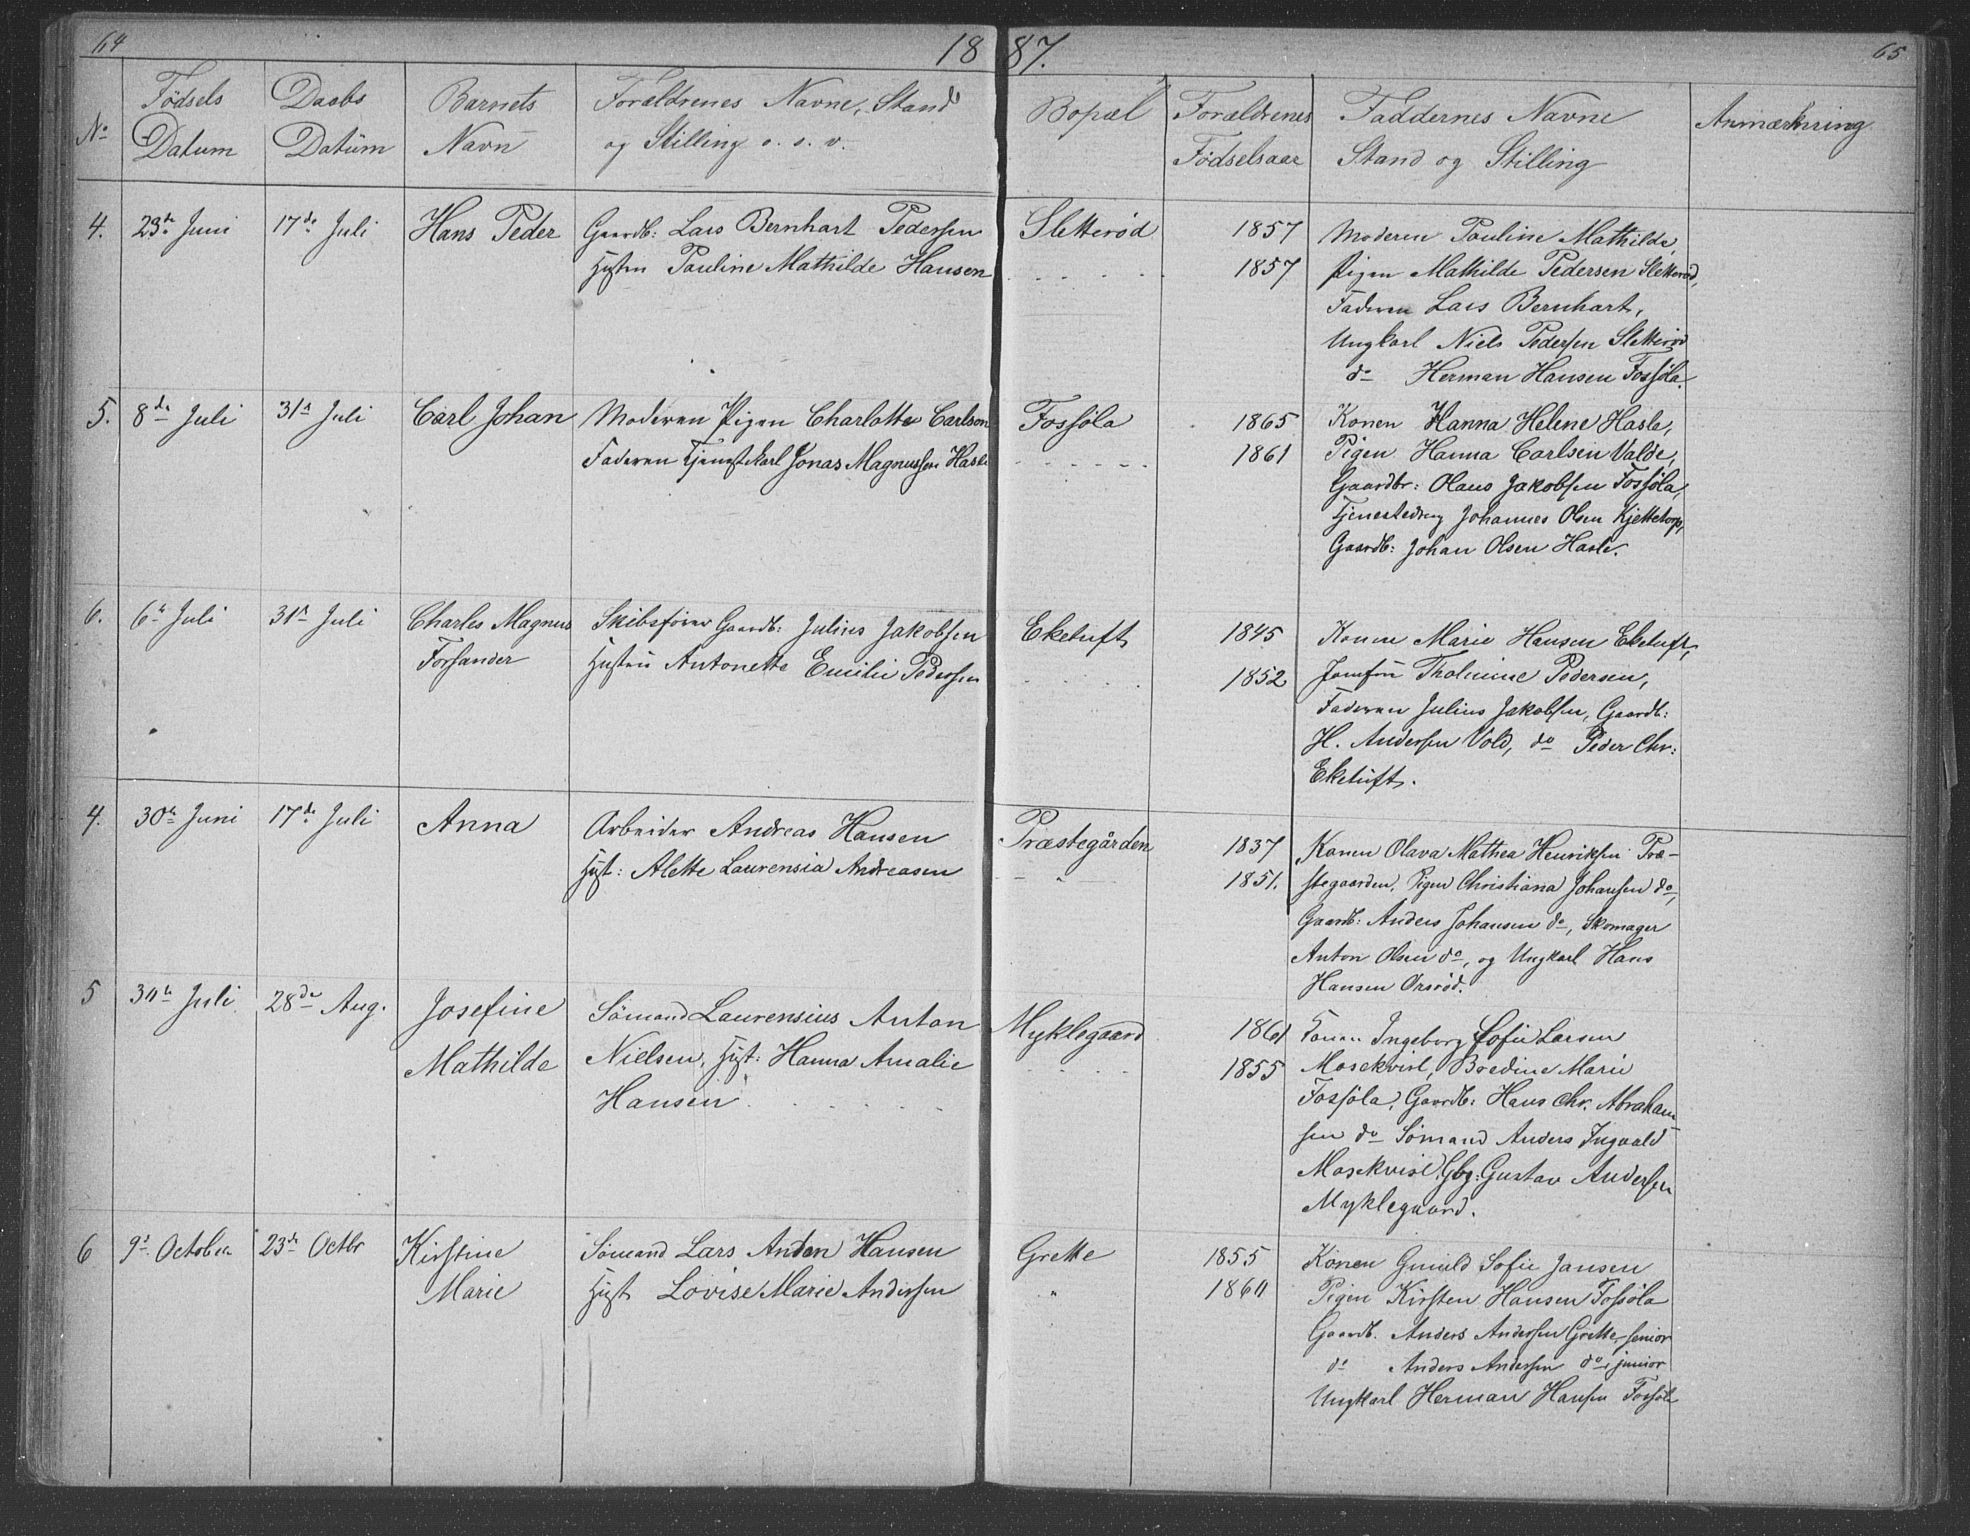 64
1887.
65
No
Fødsels Datum
Daabs Datum
Barnets Navn
Forældrenes Navne, Stand
og Stilling o. s. v.
Bopæl
Forældrenes
Fødselsaar
Faddernes Navne
Stand og Stilling
Anmærkning
4.
23de Juni
17de Juli
Hans Peder
Gaardb: Lars Bernhart Pedersen
Hustru Pauline Mathilde Hansen
Sletterød
1857
1857
Moderen Pauline Mathilde,
Pigen Mathilde Pedersen Sletterød,
Faderen Lars Bernhart,
Ungkarl Niels Pedersen Sletterød
do Herman Hansen Fosføla.
5.
8de Juli
31te Juli
Carl Johan
Moderen Pigen Charlotte Carlson
Faderen Tjenestekarl Jonas Magnussen Hasle
Fossøla
1865
1861
Konen Hanna Helene Hasle,
Pigen Hanna Carlsen Valde,
Gaardbr: Olaus Jakobsen Fossøla,
Tjenestedreng Johannes Olsen Kjettetorp,
Gaardb: Johan Olsen Hasle.
6.
6te Juli
31te Juli
Charles Magnus
Forsander
Skibsfører Gaardb: Julius Jakobsen
Hustru Antonette Emilie Pedersen
Eketuft
1845
1852
Konen Marie Hansen Eketuft,
Jomfru Tholmine Pedersen,
Faderen Julius Jakobsen, Gaardb:
H. Andersen Vold, do Peder Chr:
Eketuft.
4.
30te Juni
17de Juli
Anna
Arbeider Andreas Hansen
Hust: Alette Laurensia Andreasen
Præstegården
1837
1851.
Konen Olava Mathea Henriksen Præ-
stegaarden, Pigen Christiana Johansen do,
Gaardb: Anders Johansen do, Skomager
Anton Olsen do, og Ungkarl Hans
Hansen Orsrød.
5
30te Juli
28de Aug.
Josefine
Mathilde
Sømand Laurensius Anton
Nielsen, Hust: Hanna Amalie
Hansen
Myklegaard
1861
1855
Konen Ingeborg Sofie Larsen
Mosekvist, Bredine Marie
Fossøla, Gaardb: Hans Chr. Abraham
sen do Sømand Anders Ingvald
Mosekvist, Gbg: Gustav Andersen
Myklegaard.
6
9de October
23de Octbr
Kirstine
Marie
Sømand Lars Anton Hansen
Hust Lovise Marie Andersen
Grette
1855
1860
Konen Gunild Sofie Jansen
Pigen Kirsten Hansen Fossøla
Gaardb. Anders Andersen Grette, senior
do Anders Andersen do, junior
Ungkarl Herman Hansen Fossøla